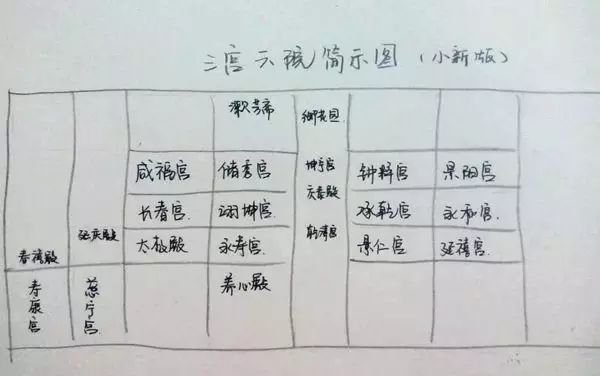 三宫六院简示图（小新版）
漱芳斋 御花园
咸福宫 储秀宫 坤宁宫 钟粹宫 景阳宫
交泰殿
长春宫 翊坤宫 承乾宫 永和宫.
延庆殿 乾清宫
太极殿 永寿宫. 景仁宫 延禧宫.
春禧殿
寿康宫 慈宁宫. 养心殿